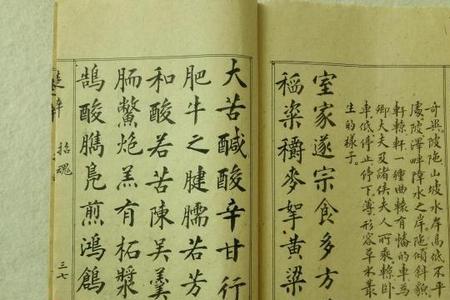 奇異陂陁山坡水岸高低不平
處陂澤畔障水之岸陁傾斜貌
軒輬軒一種曲輈有轓的車為
卿大夫及諸侯夫人所乘輬卧
車低停止停下薄形容草木叢
生的樣子。
室家遂宗食多方
稻粢穱麥挐黃粱
大苦醎酸辛甘行
肥牛之腱臑若芳
和酸若苦陳吳羹
胹鱉炮羔有柘漿
鵠酸臇鳧煎鴻鶬
招魂
三七